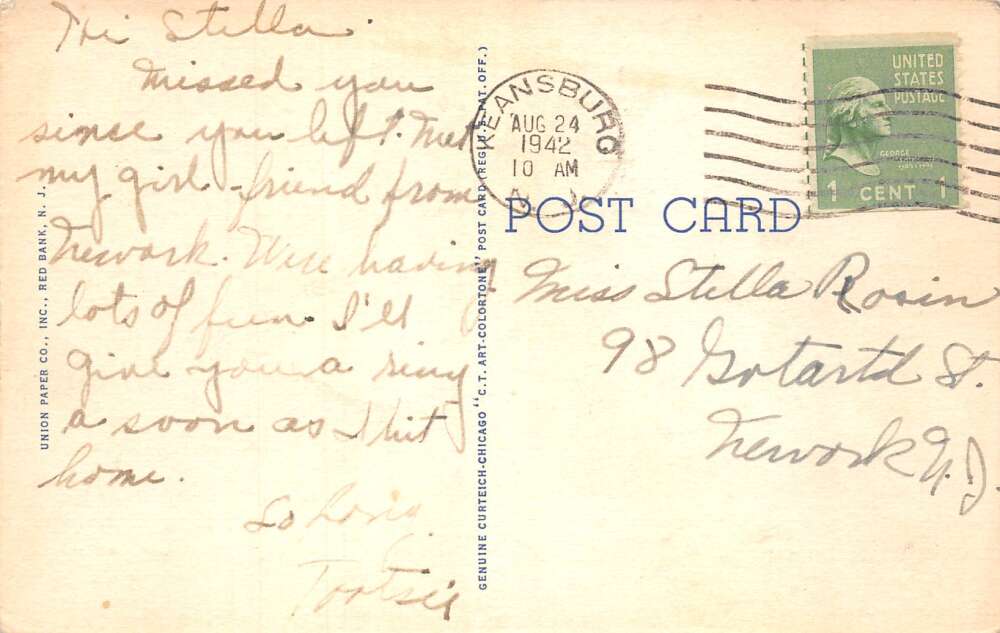 Hi Stella
Missed you
sinse you left. Met
my girl-friend from
Newark. Were having
lots of fun. I'll
give you a ring
a soon as I hit
home.
So Long
Tootsie
UNION PAPER CO., INC., RED BANK, N. J.
GENUINE CURTEICH-CHICAGO "C.T. ART-COLORTONE" POST CARD (REG. U.S. PAT. OFF.)
KEANSBURG
AUG 24
1942
10 AM
N. J.
UNITED
STATES
POSTAGE
GEORGE
WASHINGTON
1 CENT 1
POST CARD
Miss Stella Rosin
98 Gotartd St.
Newark N.J.